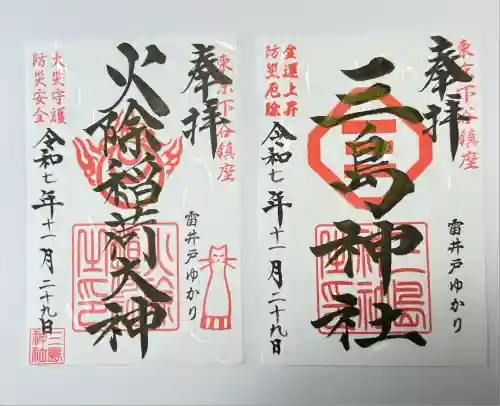 奉拝
東京下谷鎮座
火除稲荷大神
雷井戸ゆかり
火災守護
防災安全
令和七年十一月二十九日
三島神社
奉拝
東京下谷鎮座
三島神社
雷井戸ゆかり
金運上昇
防災厄除
令和七年十一月二十九日